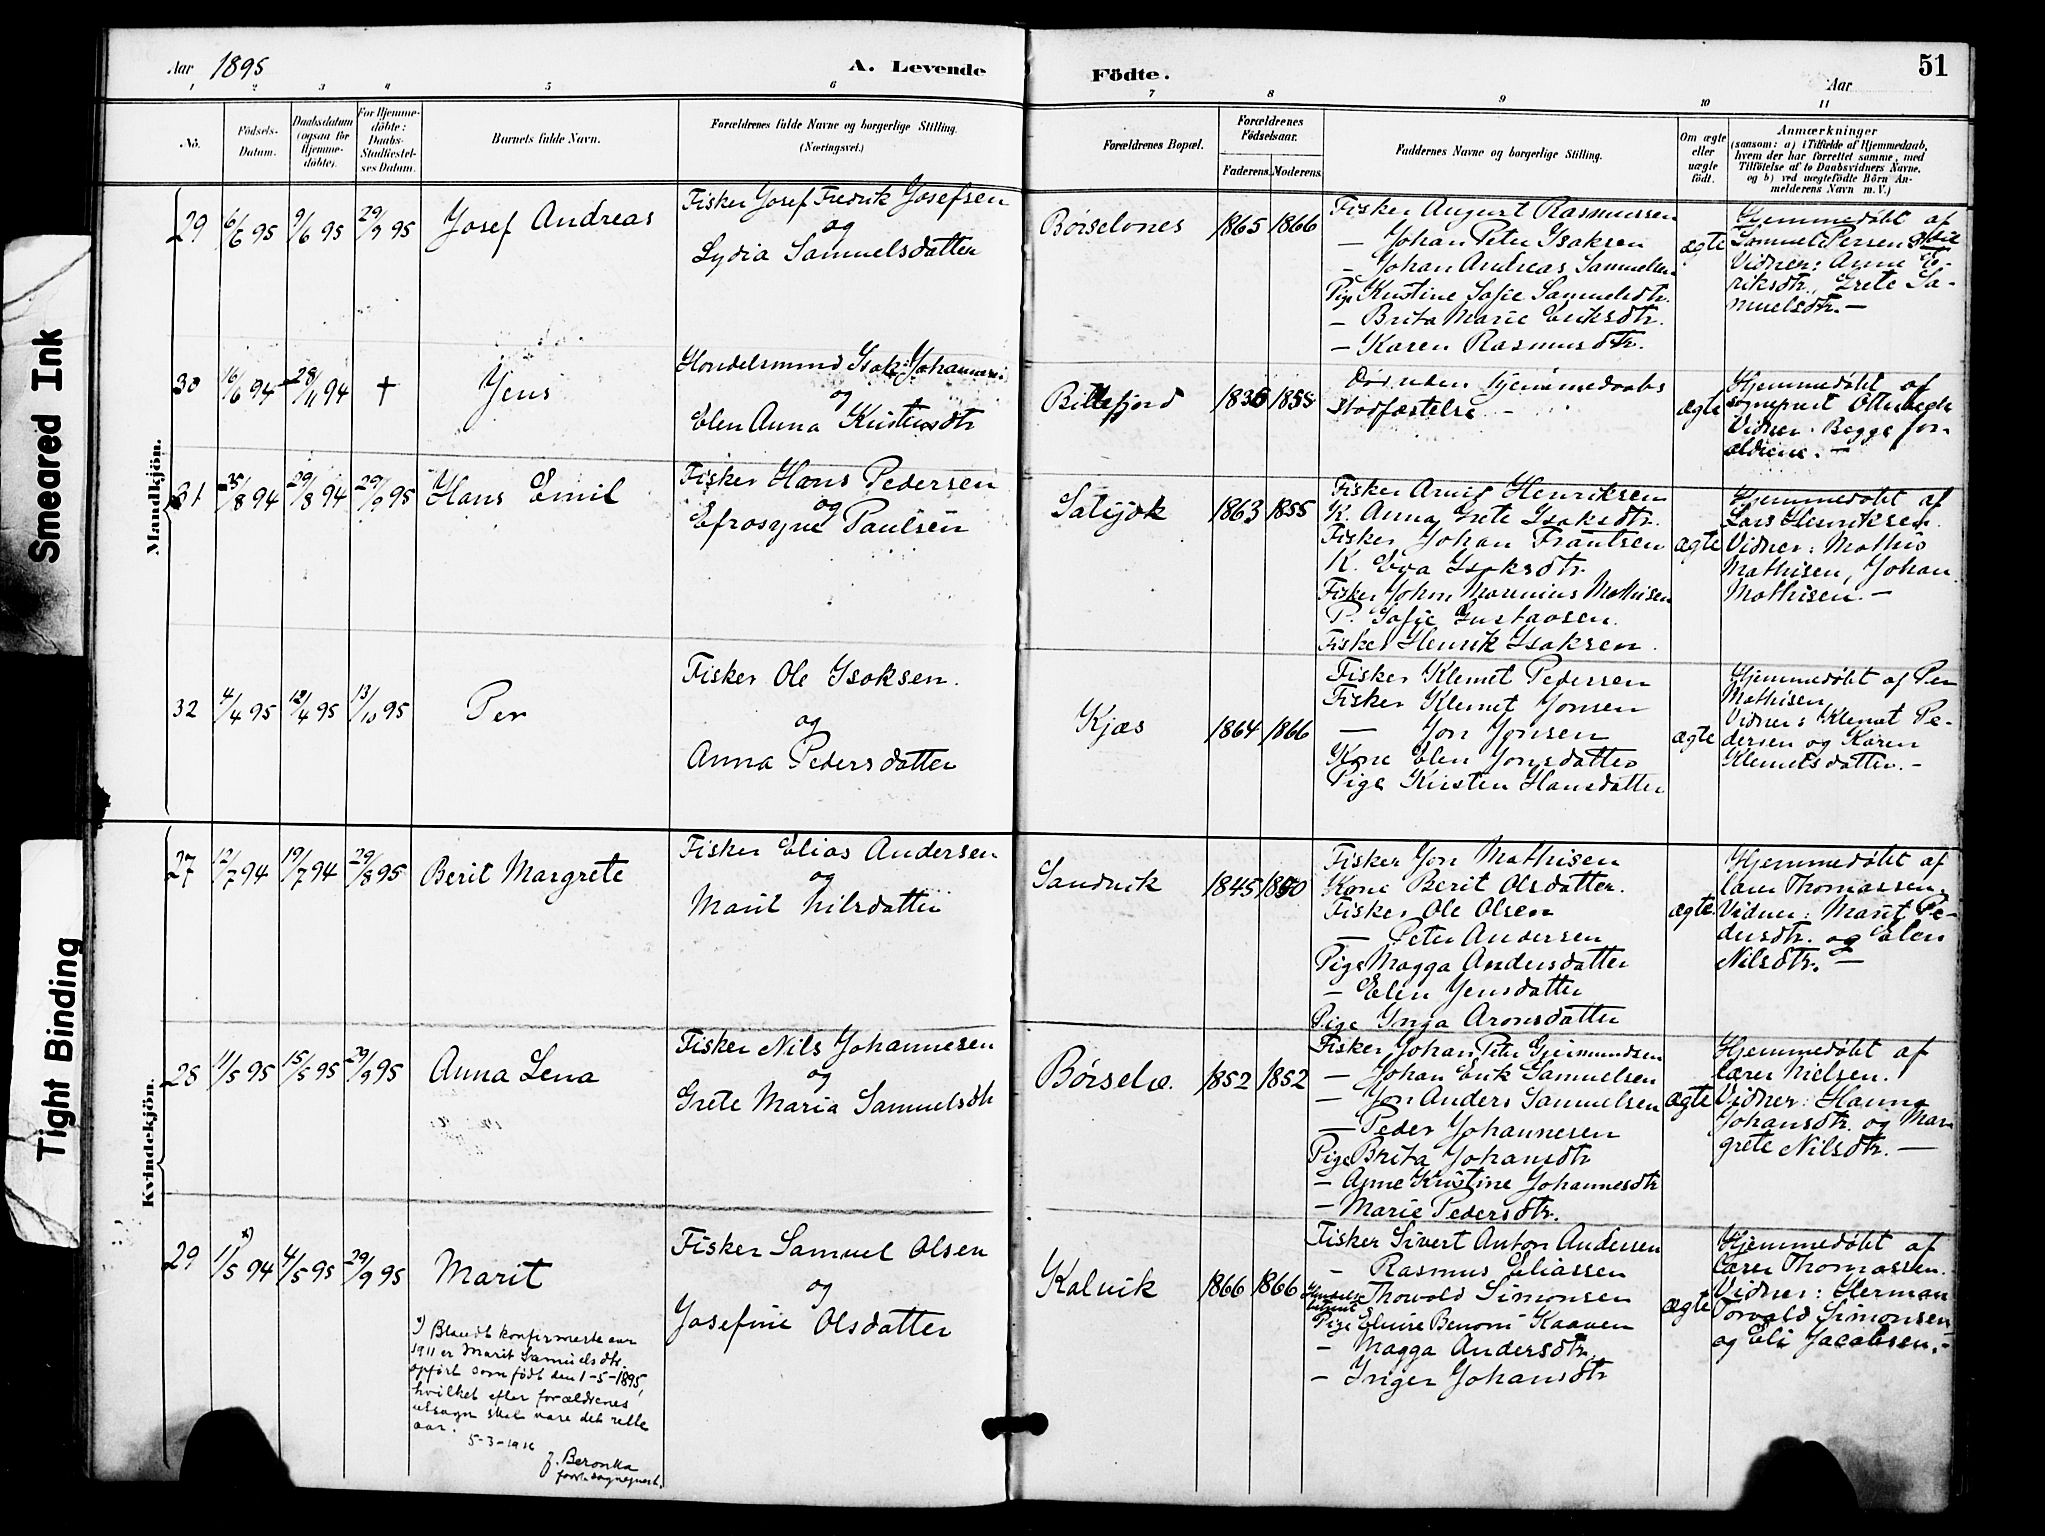 Smeared Ink
Tight Binding
Aar 1895
A. Levende
Födte.
51
Aar
1 2 3 4 5 6 7 8 9 10 11
No.
Födsels-
Datum.
Daabsdatum
(ogsaa for
Hjemme-
døbte).
For Hjemme-
döbte:
Daabs-
Stadfæstel-
ses Datum.
Barnets fulde Navn.
Forældrenes fulde Navne og borgerlige Stilling.
(Næringsvei.)
Forældrenes Bopæl.
Forældrenes
Födselsaar.
Faderens. Moderens.
Faddernes Navne og borgerlige Stilling.
Om ægte
eller
uægte
födt.
Anmærkninger
(saasom: a) i Tilfælde af Hjemmedaab,
hvem der har forrettet samme, med
Tilföielse af to Daabsvidners Navne.
og b) ved uægtefödte Börn An-
melderens Navn m. V.)
Mandkjön.
29 6/6 95 9/6 95 29/9 95 Josef Andreas
Fisker Josef Fredrik Josefsen
og
Lydia Samuelsdatter
Børselvnes 1865 1866
Fisker August Rasmussen
— Johan Peter Isaksen
— Johan Andreas Samuelsen
Pige Kristine Sofie Samuelsdtr.
— Brita Marie Eriksdtr.
— Karen Rasmusdtr.
ægte
Hjemmedøbt af
Samuel Persen
Vidner: Anne E-
riksdtr., Grete Sa-
muelsdtr. —
30 16/6 94 28/11 94 + Jens
Handelsmand Isak Johannesen
og
Elen Anna Kristiansdtr
Billefjord 1836 1858
Død uden Hjemmedaabs
stadfæstelse —
ægte
Hjemmedøbt af
sognepræst Otterbech
Vidner: Begge for-
ældrene. —
31 25/8 94 29/8 94 29/9 95 Hans Emil
Fisker Hans Pedersen
og
Efrosyne Paulsen
1863 1855
Fisker Arvid Henriksen
K. Anna Grete Isaksdtr.
Fisker Johan Frantsen
K. Eva Isaksdtr.
Fisker Johan Marinius Mathisen
P. Sofie Gustavsen.
Fisker Henrik Isaksen.
ægte
Hjemmedøbt af
Lars Henriksen.
Vidner: Mathis
Mathisen, Johan
Mathisen. —
32 4/4 95 12/4 95 13/10 95 Per
Fisker Ole Isaksen.
og
Anna Pedersdatter
Kjæs 1864 1866
Fisker Klemet Pedersen
Fisker Klemet Jonsen
— Jon Jonsen
Kone Elen Jonsdatter
Pige Kirsten Hansdatter
ægte
Hjemmedøbt af Per
Mathisen
Vidner: Klemet Pe-
dersen og Karen
Klemetsdatter. —
Kvindekjön.
27 12/7 94 19/7 94 29/8 95 Berit Margrete
Fisker Elias Andersen
og
Marit Nilsdatter
Sandvik 1845 1850
Fisker Jon Mathisen
Kone Berit Olsdatter.
Fisker Ole Olsen
— Peter Andersen
Pige Magga Andersdatter
— Elen Jensdatter
Pige Inga Aronsdatter
ægte.
Hjemmedøbt af
lærer Thomassen.
Vidner: Marit Pe-
dersdtr. og Elen
Nilsdtr. —
28 11/5 95 15/5 95 29/9 95 Anna Lena
Fisker Nils Johannesen
og
Grete Maria Samuelsdtr
Børselv. 1852 1852
Fisker Johan Peter Geirmundsen
— Johan Erik Samuelsen
— Jon Anders Samuelsen
— Peder Johannesen
Pige Brita Johansdtr
— Anne Kristine Johannesdtr
— Marie Pedersdtr.
ægte
Hjemmedøbt af
lærer Nielsen.
Vidner: Hanna
Johansdtr. og Mar-
grete Nilsdtr. —
29 1/5 x) 94 4/5 95 29/9 95 Marit
Fisker Samuel Olsen
og
Josefine Olsdatter
Kalvik 1866 1866
Fisker Sivert Anton Andersen
— Rasmus Eliassen
Thorvald Simonsen
Pige Elvire Benoni Kaaven
— Magga Andersdtr.
— Inger Johansdtr
ægte
Hjemmedøbt af
Lærer Thomassen.
Vidner: Herman
Torvald Simonsen
og Eli Jacobsen. —
x) Blandt konfirmerte aar
1911 er Marit Samuelsdtr.
opført som født den 1-5-1895,
hvilket efter forældrenes
utsagn skal være det rette
aar.
5-3-1916
J. Beronka
forh. sogneprest.